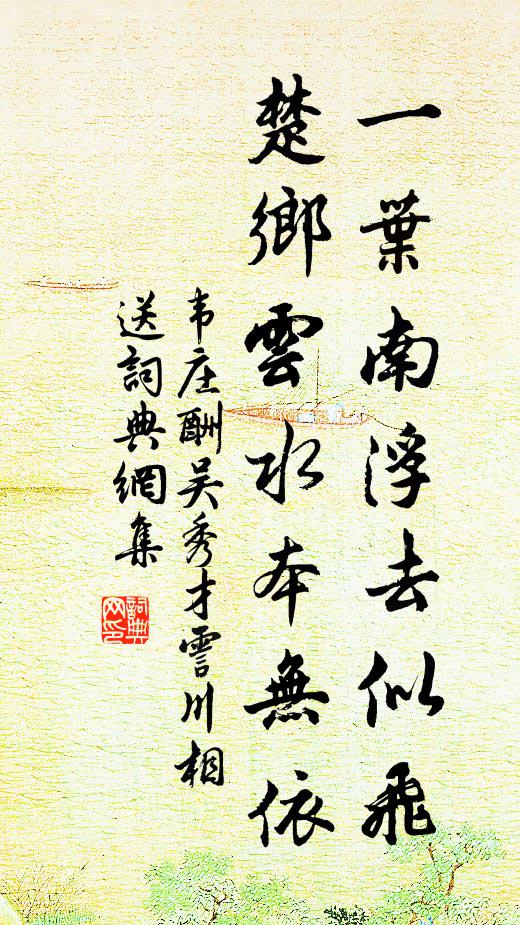 一葉南浮去似飛
楚鄉雲水本無依
韦庄酬吴秀才霅川相
送詞典網集
詞典
网印